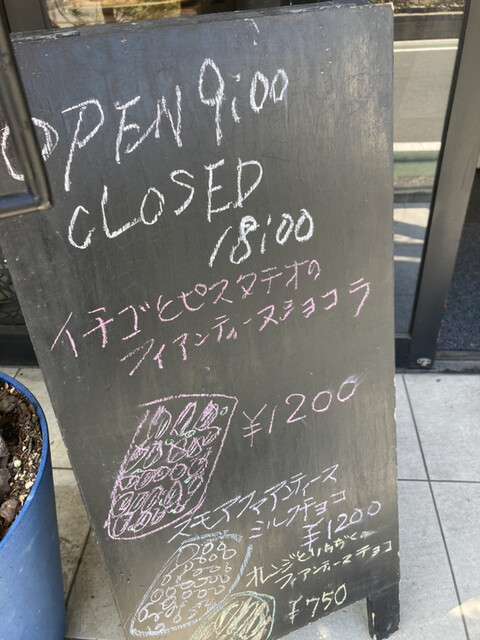 OPEN 9:00
CLOSED
18:00
イチゴとピスタチオの
フィアンティーヌショコラ
¥1200
スモアファアンティース
ミルクチョコ
¥1200
オレンジといちぢく
フィアンティースチョコ
¥750